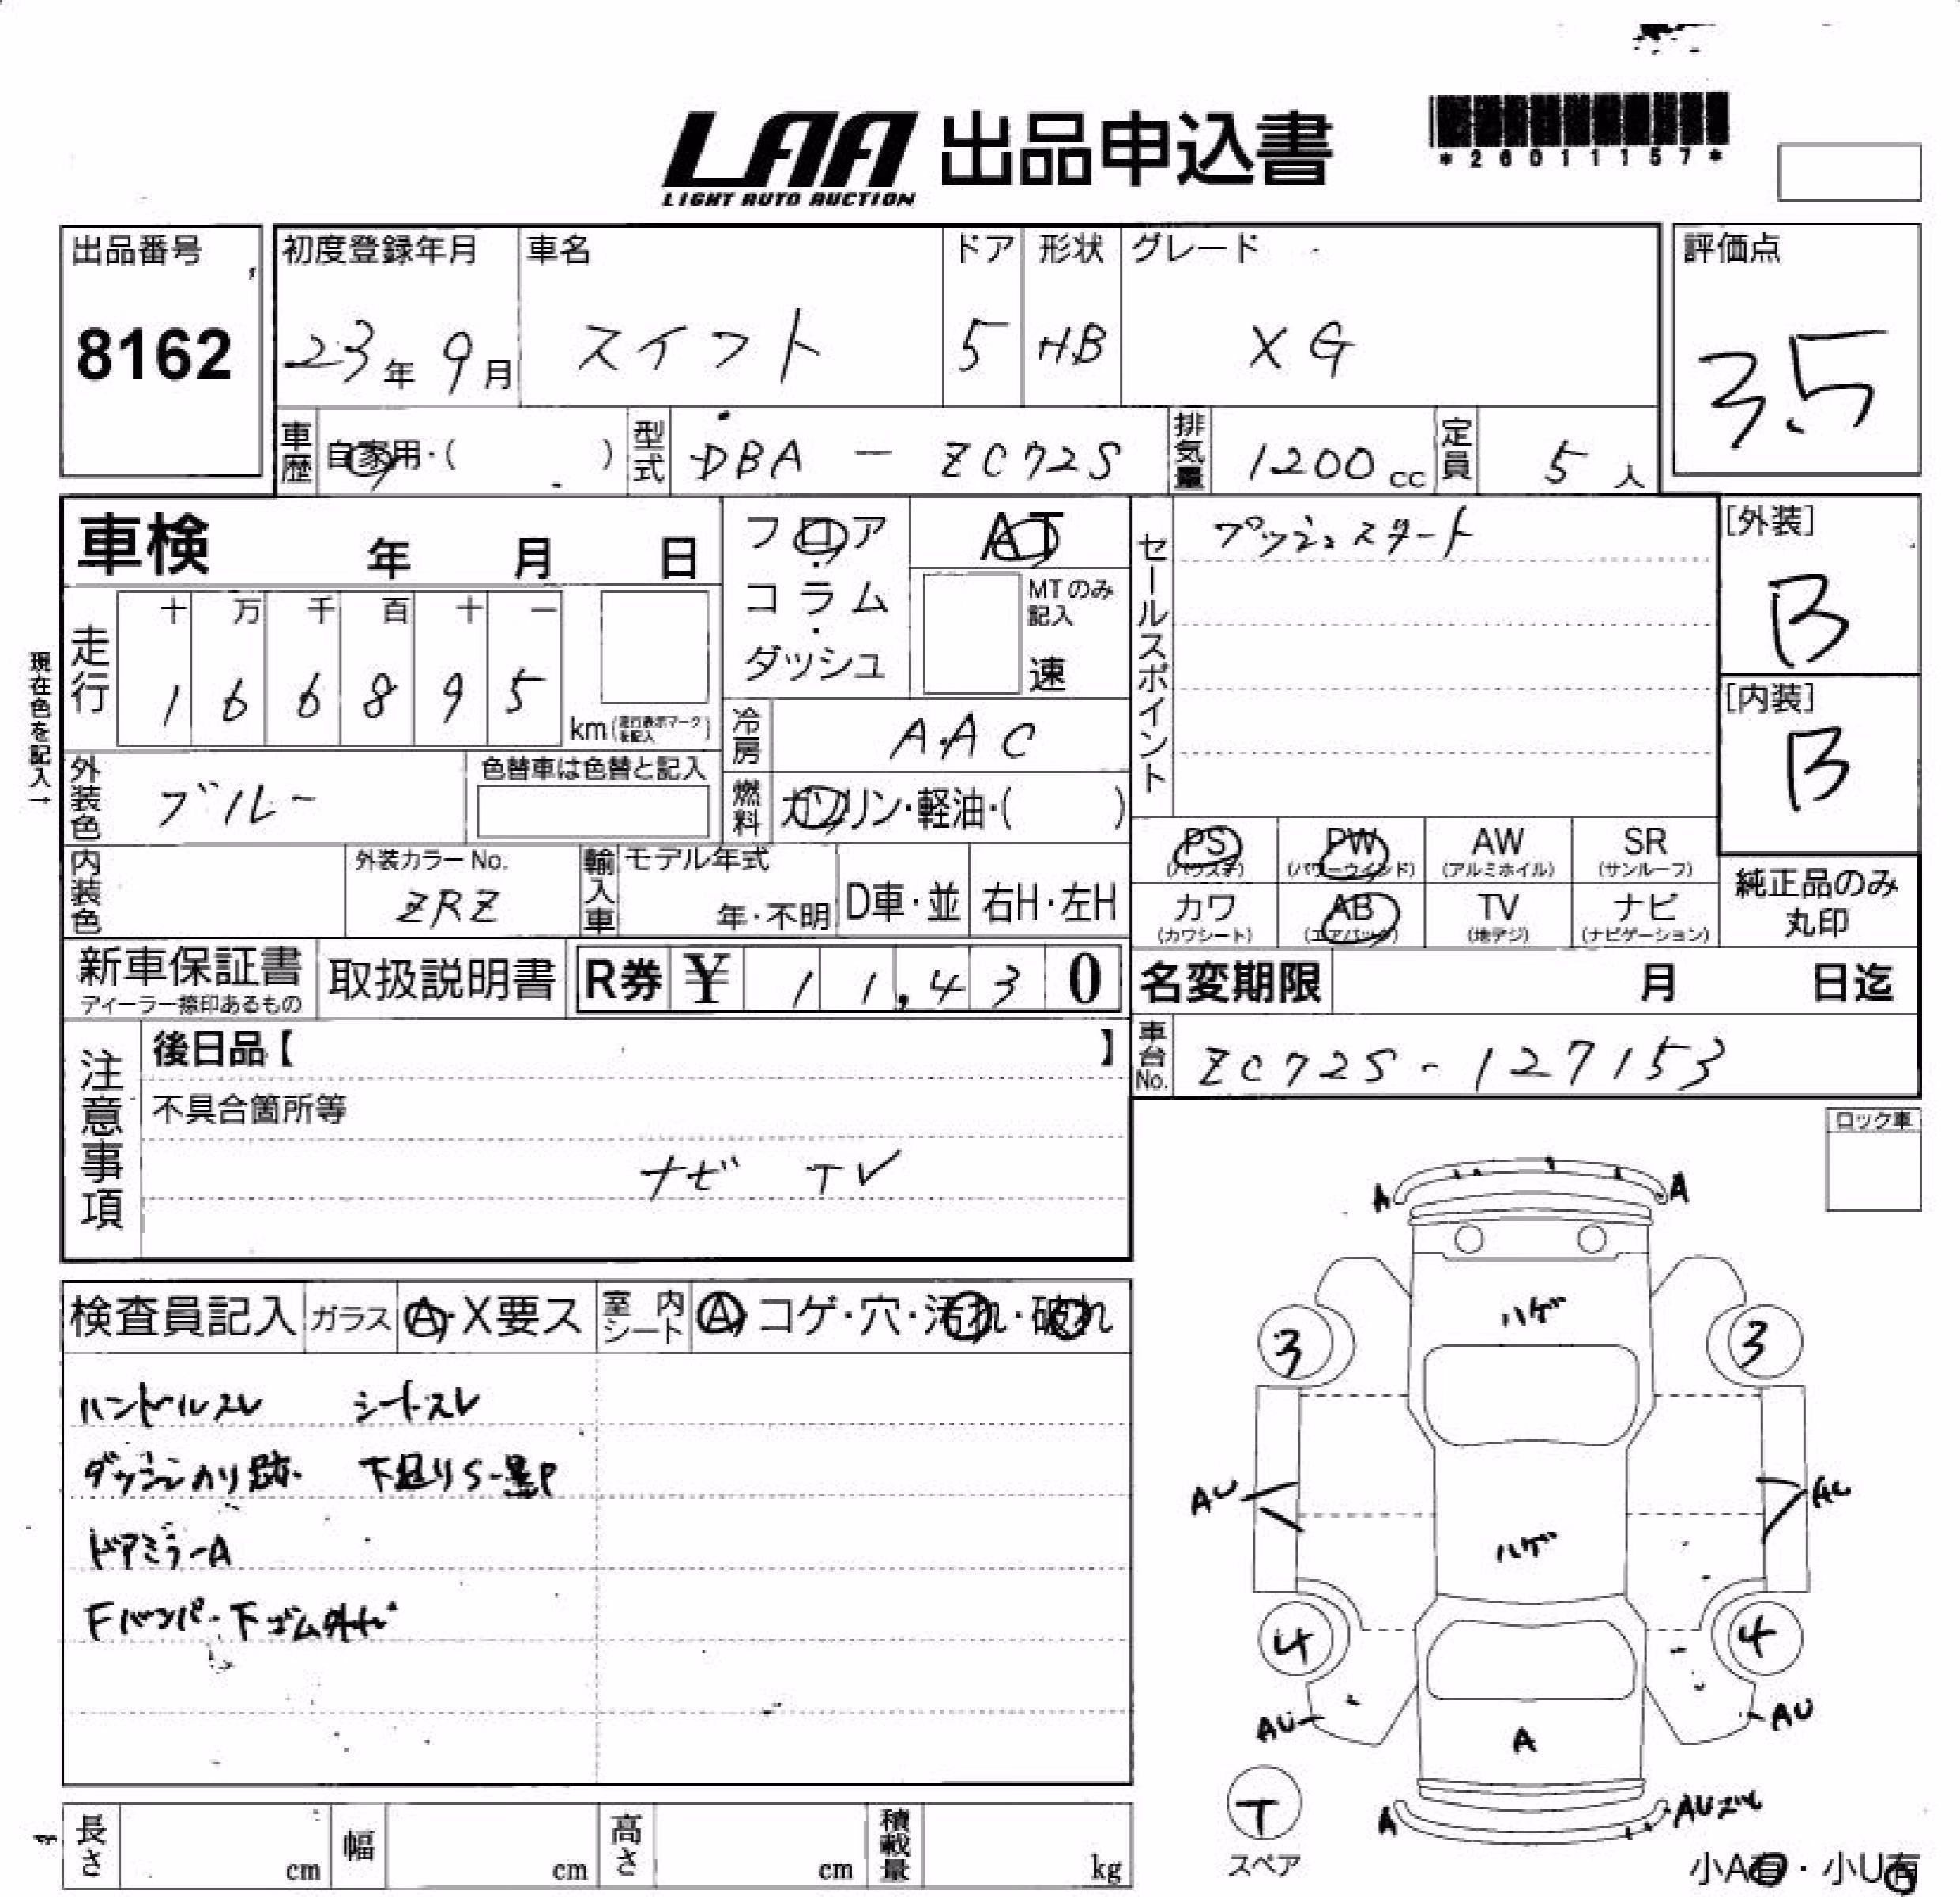 LAA 出品申込書
LIGHT AUTO AUCTION
*26011157*
出品番号 初度登録年月 車名 ドア 形状 グレード 評価点
8162 23年 9月 スイフト 5 HB XG 3.5
車歴 自家用・( ) 型式 DBA - ZC72S 排気量 1200cc 定員 5人
車検 年 月 日
フロア・コラム・ダッシュ
AT
MTのみ記入
速
セールスポイント プッシュスタート
[外装]
B
[内装]
B
現在色を記入→
走行 十 万 千 百 十 一
1 6 6 8 9 5
km(走行表示マークを記入)
冷房 AAC
外装色 ブルー 色替車は色替と記入
燃料 ガソリン・軽油・( )
PS AW SR
(パワステ) PW (パワーウインド) (アルミホイル) (サンルーフ)
カワ AB TV ナビ
(カワシート) (エアバック) (地デジ) (ナビゲーション)
純正品のみ
丸印
内装色 外装カラーNo. ZRZ 輸入車 モデル年式 年・不明 D車・並 右H・左H
新車保証書 取扱説明書 R券 ¥ 11,430
ディーラー捺印あるもの
名変期限 月 日迄
車台No. ZC72S-127153
注意事項
後日品【 】
不具合箇所等
ナビ TV
ロック車
検査員記入 ガラス A・X要ス 室内シート A コゲ・穴・汚れ・破れ
ハンドルスレ シートスレ
ダッシュノリ跡 下廻りS-黒P
ドアミラーA
Fバンパー下ゴム外れ
A A
ハゲ
3 3
AU AU
ハゲ
4 4
AU AU
A
T
スペア
A AUズレ
小A有・小U有
長さ cm 幅 cm 高さ cm 積載量 kg